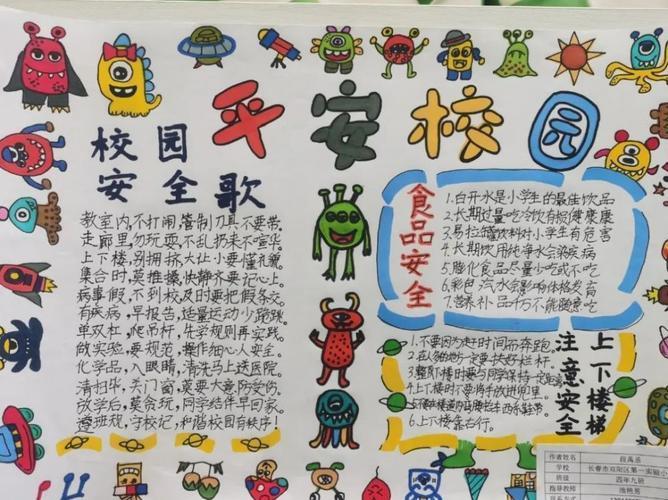 平安校园
校园
安全歌
教室内,不打闹,管制刀具不要带。
走廊里,勿玩耍,不乱扔来不喧华。
上下楼,别拥挤,大让小要懂礼貌
集合时,莫推搡,快静齐要记心上。
病事假,不到校,及时要把假条交。
有疾病,早报告,适量运动少跑跳。
单双杠,爬吊杆,先学规则再实践。
做实验,要规范,操作细心人安全。
化学品,入眼睛,清洗马上送医院。
清扫毕,关门窗,莫要大意防受伤。
放学后,莫贪玩,同学结伴早回家。
遵班规,守校纪,和谐校园有秩序!
食品安全
1.白开水是小学生的最佳饮品
2.长期过量吃冷饮有损健康
3.易拉罐饮料对小学生有危害
4.长期饮用纯净水会染疾病
5.膨化食品尽量少吃或不吃
6.彩色汽水会影响体格发育
7.营养补品千万不能随意吃
上下楼梯
注意安全
1.不要因为赶时间而奔跑。
2.在人多的地方一定要扶好栏杆。
3.整队下楼时要与同学保持一定距离
4.上下楼时不要将手放进兜里。
6.上下楼靠右行。
作者姓名 段禹丞
学校 长春市双阳区第一实验小
班级 四年九班
指导教师